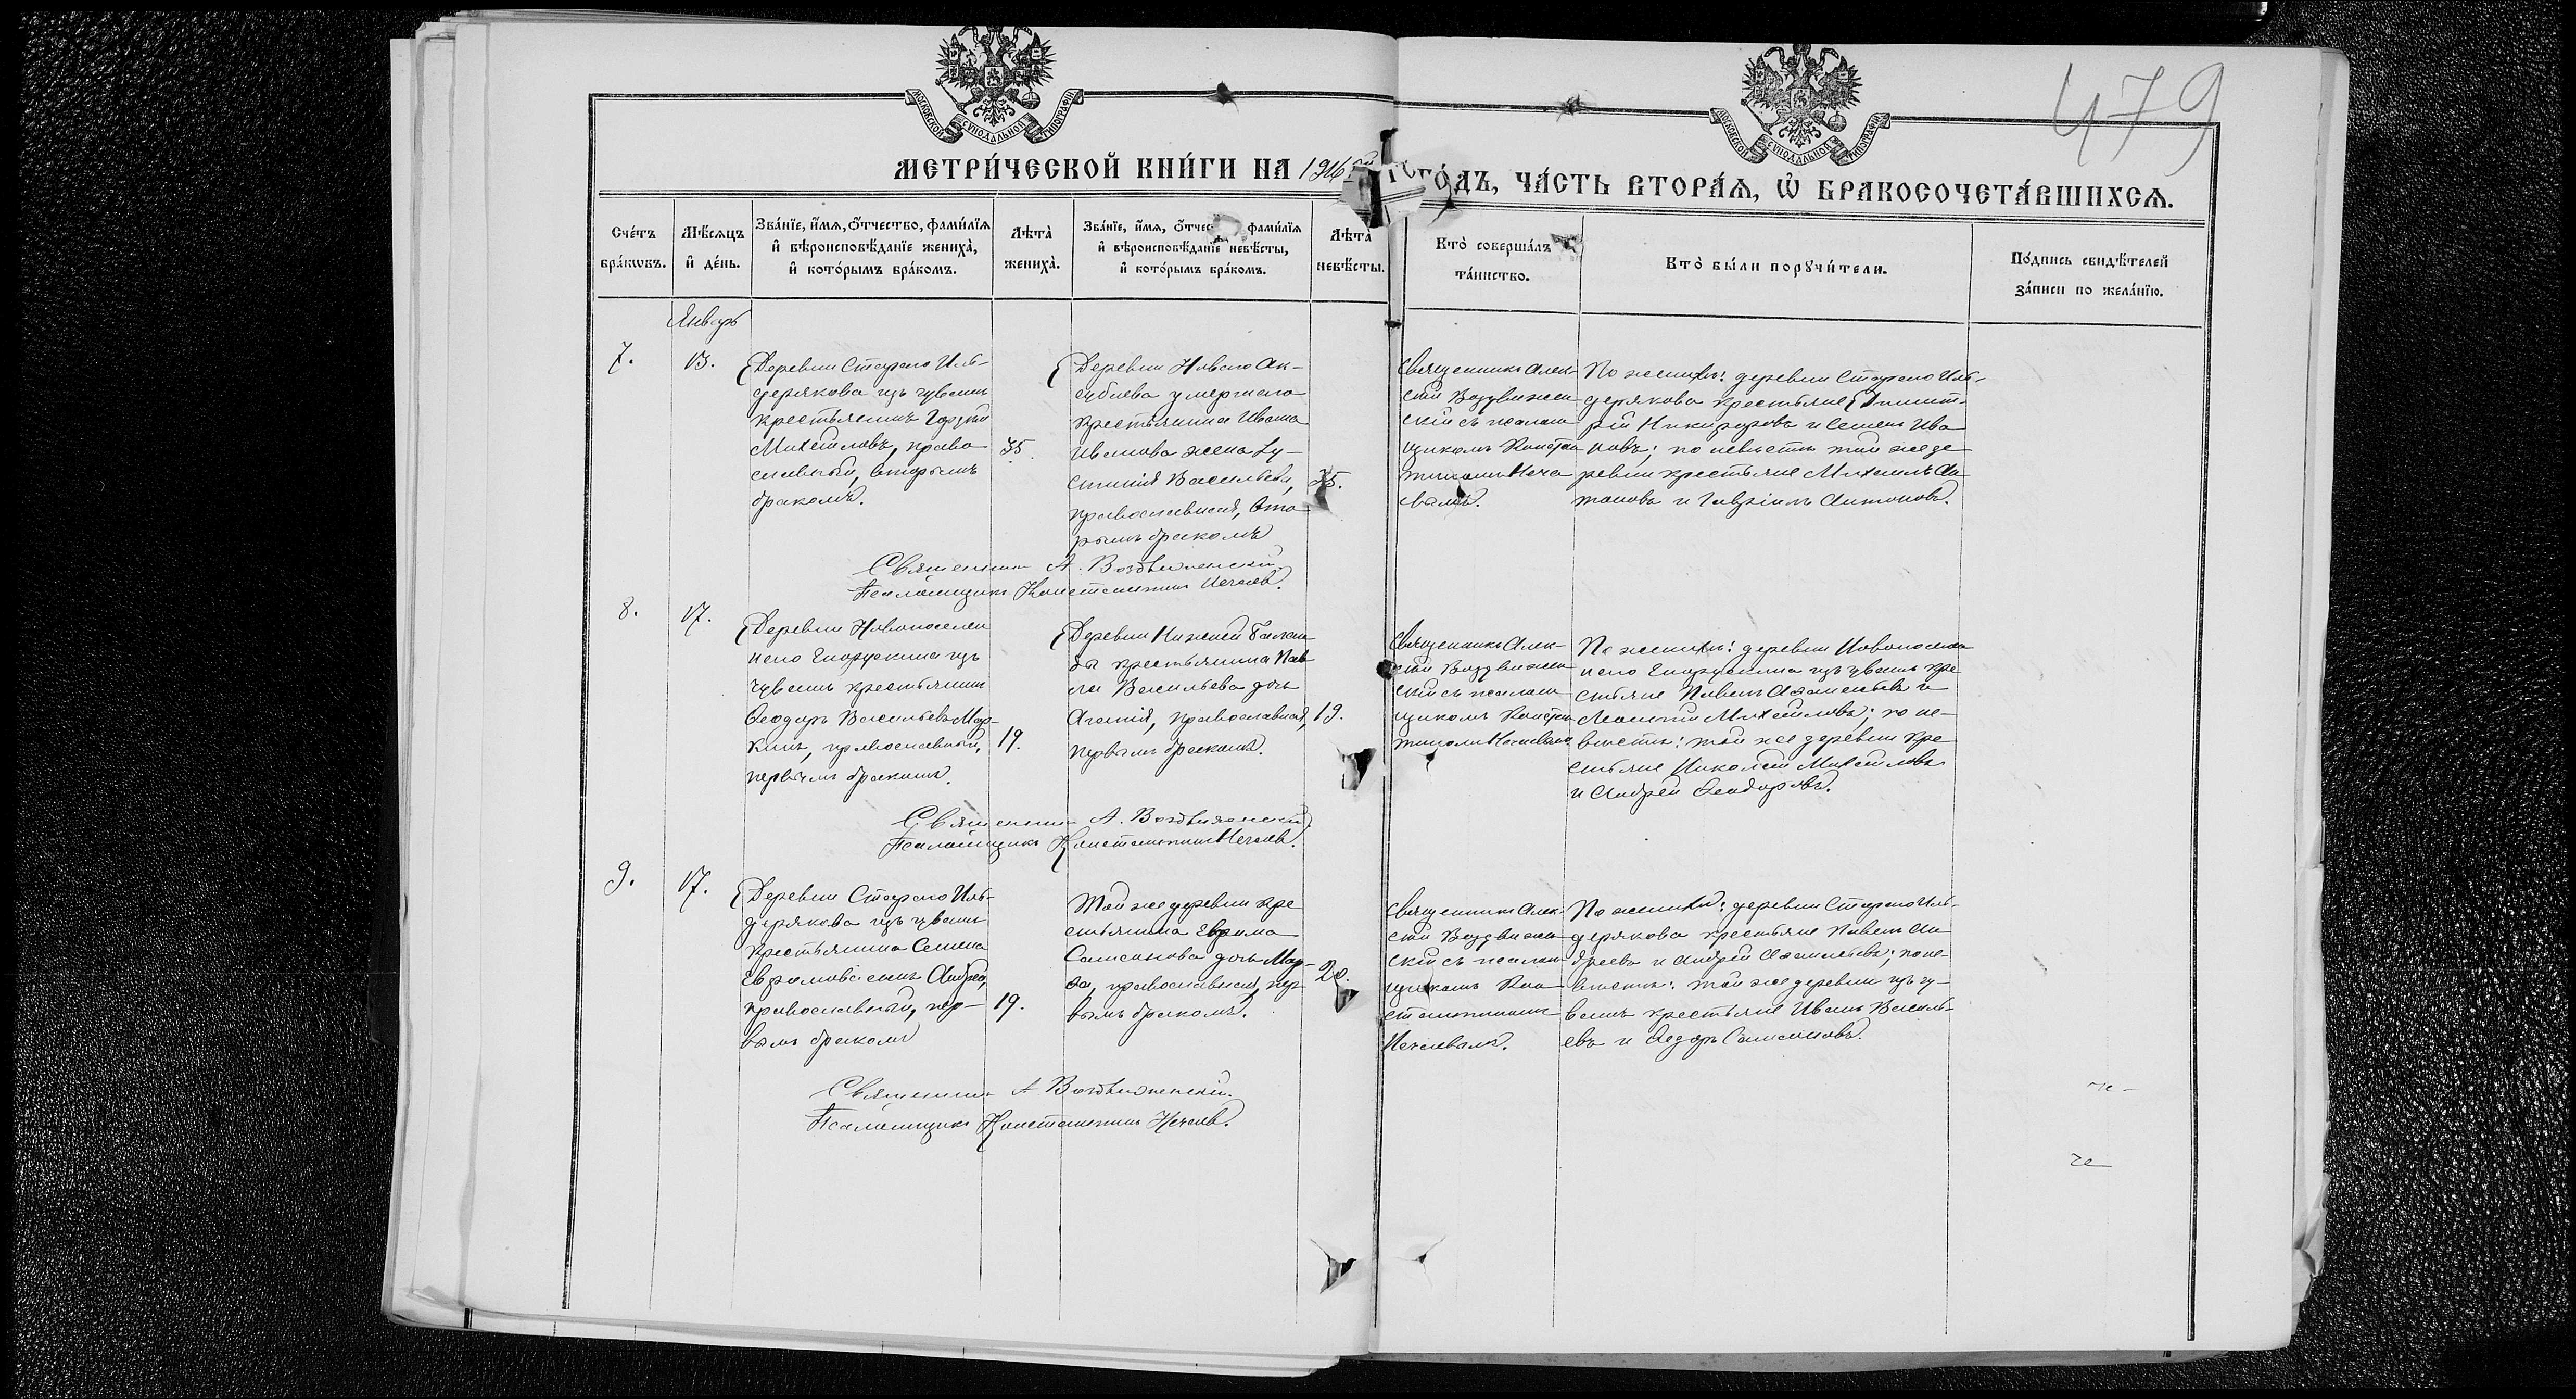 479
МОСКОВСКОЙ СУНОДАЛЬНОЙ ТИПОГРАФІИ
МОСКОВСКОЙ СУНОДАЛЬНОЙ ТИПОГРАФІИ
МЕТРИ́ЧЕСКОЙ КНИ́ГИ НА ГО́ДЪ, ЧА́СТЬ ВТОРА́Я, Ѡ҆ БРАКОСОЧЕТА́ВШИХСѦ.
Сче́тъ
бра́кѡвъ.
Мѣ́сяцъ
и҆ де́нь.
Зва́нїе, и҆́мя, ѻ҆́тчество, фами́лїя
и҆ вѣроисповѣ́данїе жениха̀,
и҆ кото́рымъ бра́комъ.
Лѣта̀
жениха̀.
Зва́нїе, и҆́мя, фами́лїя
и҆ вѣроисповѣ́данїе невѣ́сты,
и҆ кото́рымъ бра́комъ.
Лѣта̀
невѣ́сты.
Кто̀ соверша́лъ
та́инство.
Кто̀ бы́ли порꙋчи́тели.
По́дпись свидѣ́телей
за́писи по жела́нїю.
Январь
7.
13.
Деревни Стараго Иль-
дерякова изъ чувашъ
крестьянинъ
Михайловъ, право-
славный, вторымъ
бракомъ.
35.
Деревни Новаго Ак-
субаева умершаго
крестьянина Ивана
Иванова жена Еу-
Васильева,
православная, вто-
рымъ бракомъ
35.
Священникъ Алек-
сій Воздвижен
скій съ псалом
щикомъ Констан
тиномъ Неча
евымъ.
По женихѣ: деревни Стараго Иль-
дерякова крестьяне Димит-
рій Никифоровъ и Семенъ Ива
новъ; по невѣстѣ той же де
ревни крестьяне Михаилъ Ан
тоновъ и Гавріилъ Антоновъ.
Священникъ А. Воздвиженскій.
Псаломщикъ Константинъ Нечаевъ.
8.
17.
Деревни Новопоселен
наго изъ
чувашъ крестьянинъ
Ѳеодоръ Васильевъ Мар-
кинъ, православный,
первымъ бракомъ.
19.
Деревни Нижней
крестьянина Пав
ла Васильева дочь
Агаѳія, православная,
первымъ бракомъ.
19.
Священникъ Алек-
сій Воздвижен
скій съ псалом
щикомъ Констан
тиномъ Нечаевымъ
По женихѣ: деревни Новопоселен
наго изъ чувашъ кре
стьяне Павелъ и
Михайловъ; по не-
вѣстѣ: той же деревни кре
стьяне Николай Михайловъ
и Андрей Ѳеодоровъ.
Священникъ А. Воздвиженскій.
Псаломщикъ Константинъ Нечаевъ.
9.
17.
Деревни Стараго Иль-
дерякова изъ чувашъ
крестьянина Семена
Ефремова сынъ Андрей,
православный, пер-
вымъ бракомъ
19.
Той же деревни кре
стьянина Ефрема
Самсонова дочь Мар-
ѳа, православная, пер
вымъ бракомъ.
20.
Священникъ Алек-
сій Воздвижен
скій съ псалом
щикомъ Кон
стантиномъ
Нечаевымъ.
По женихѣ: деревни Стараго Иль-
дерякова крестьяне Павелъ Ан
дреевъ и Андрей; по не-
вѣстѣ: той же деревни изъ чу-
вашъ крестьяне Иванъ Василь-
евъ и Ѳедоръ Самсоновъ.
Священникъ А Воздвиженскій.
Псаломщикъ Константинъ Нечаевъ.